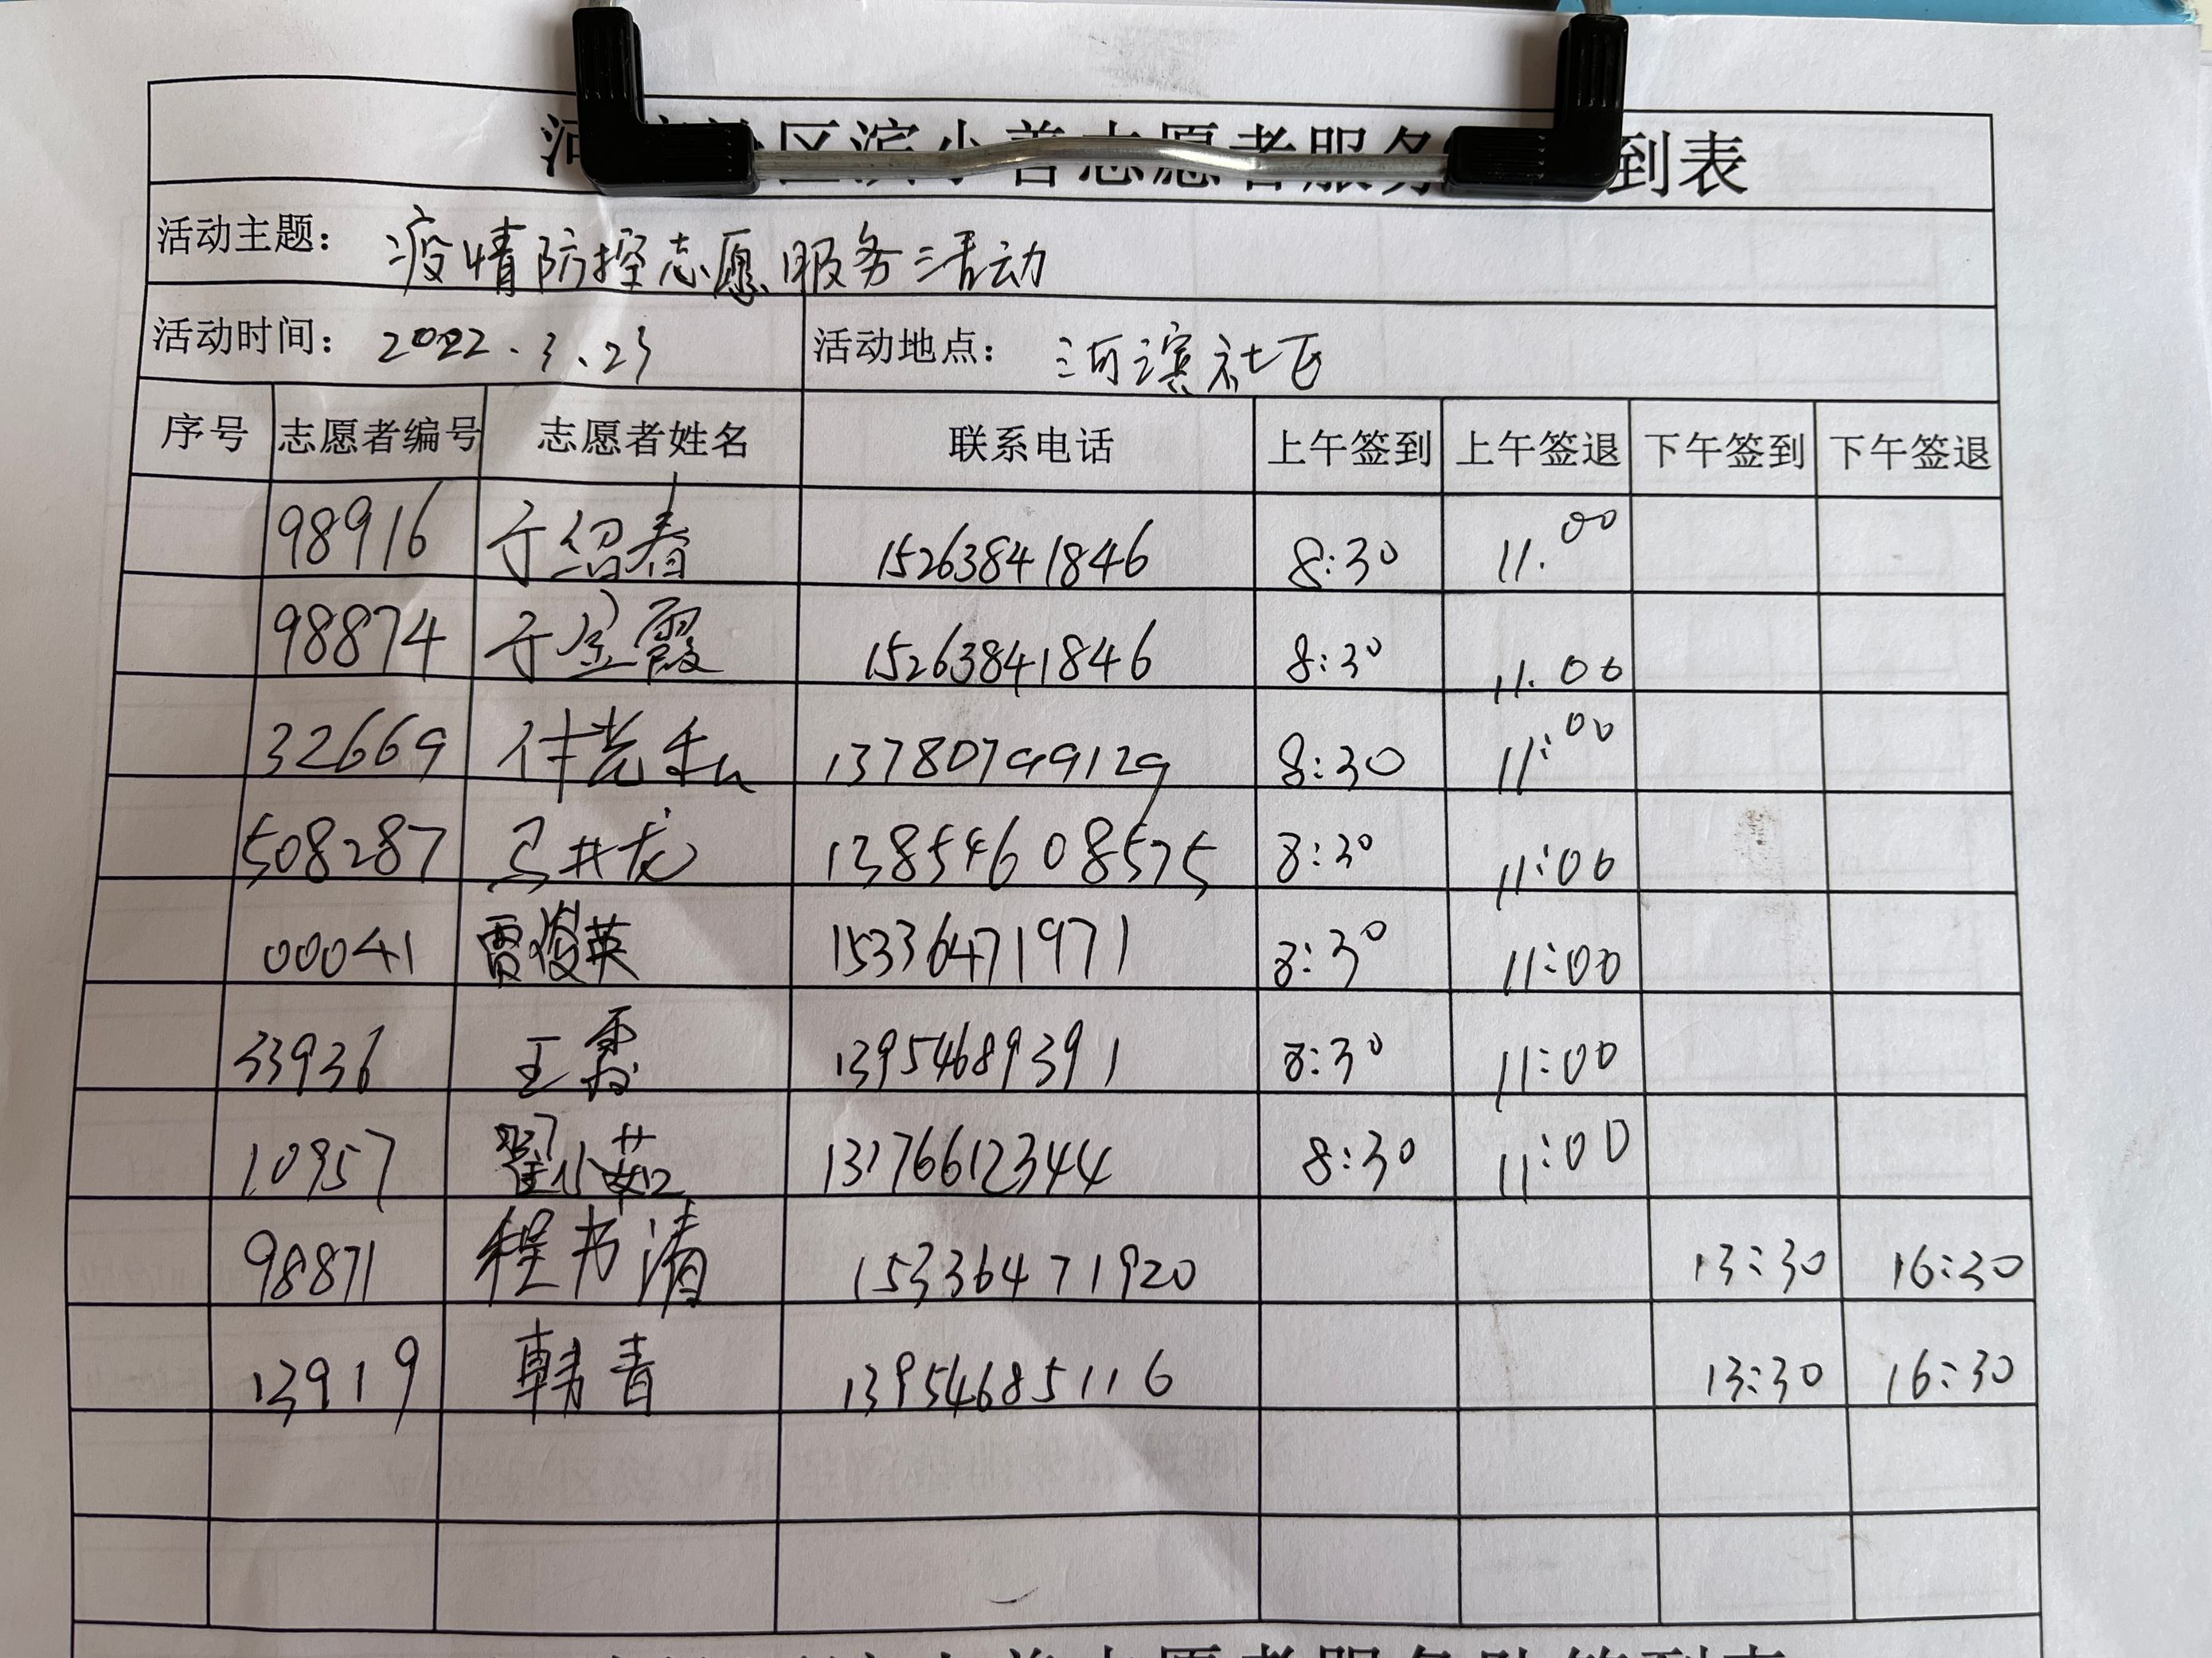 河滨社区滨小善志愿者服务队签到表
活动主题： 疫情防控志愿服务活动
活动时间： 2022.3.23 活动地点： 河滨社区
序号 志愿者编号 志愿者姓名 联系电话 上午签到 上午签退 下午签到 下午签退
98916 于绍春 15263841846 8:30 11.00
98874 于金霞 15263841846 8:30 11.00
32669 付光私 13780799129 8:30 11:00
508287 马井龙 13854608575 8:30 11:00
00041 贾俊英 15336471971 8:30 11:00
33936 王霞 13954689391 8:30 11:00
10957 翟小茹 13176612344 8:30 11:00
98871 程书清 15336471920 13:30 16:30
13919 韩青 13954685116 13:30 16:30